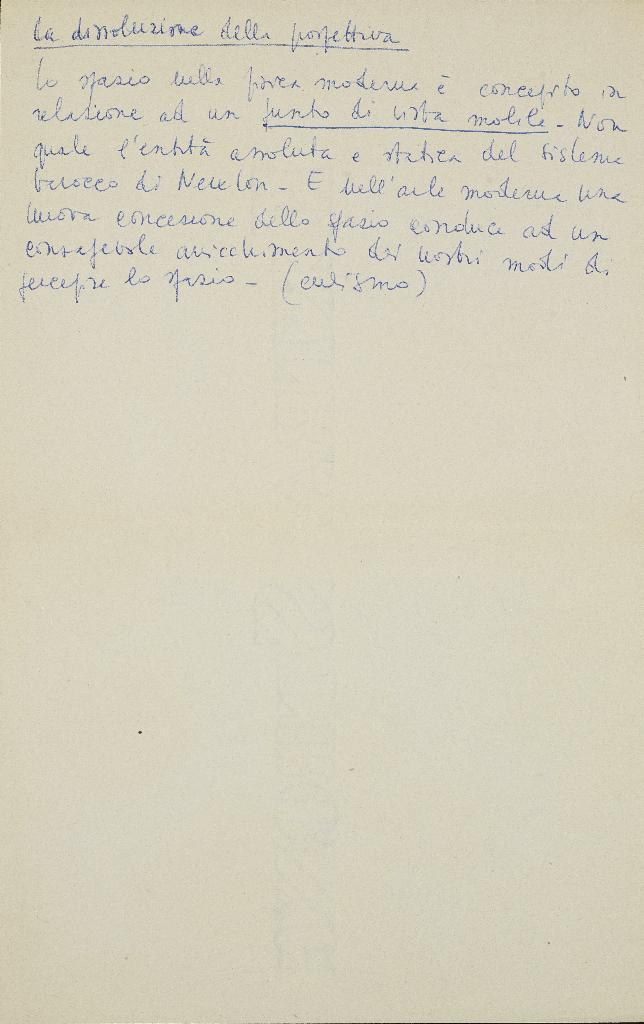 La dissoluzione della prospettiva
Lo spazio nella fisica moderna è concepito in
relazione ad un punto di vista mobile - Non
quale l'entità assoluta e statica del sistema
barocco di Newton - E nell'arte moderna una
nuova concezione dello spazio conduce ad un
consapevole arricchimento dei nostri modi di
percepire lo spazio - (cubismo)